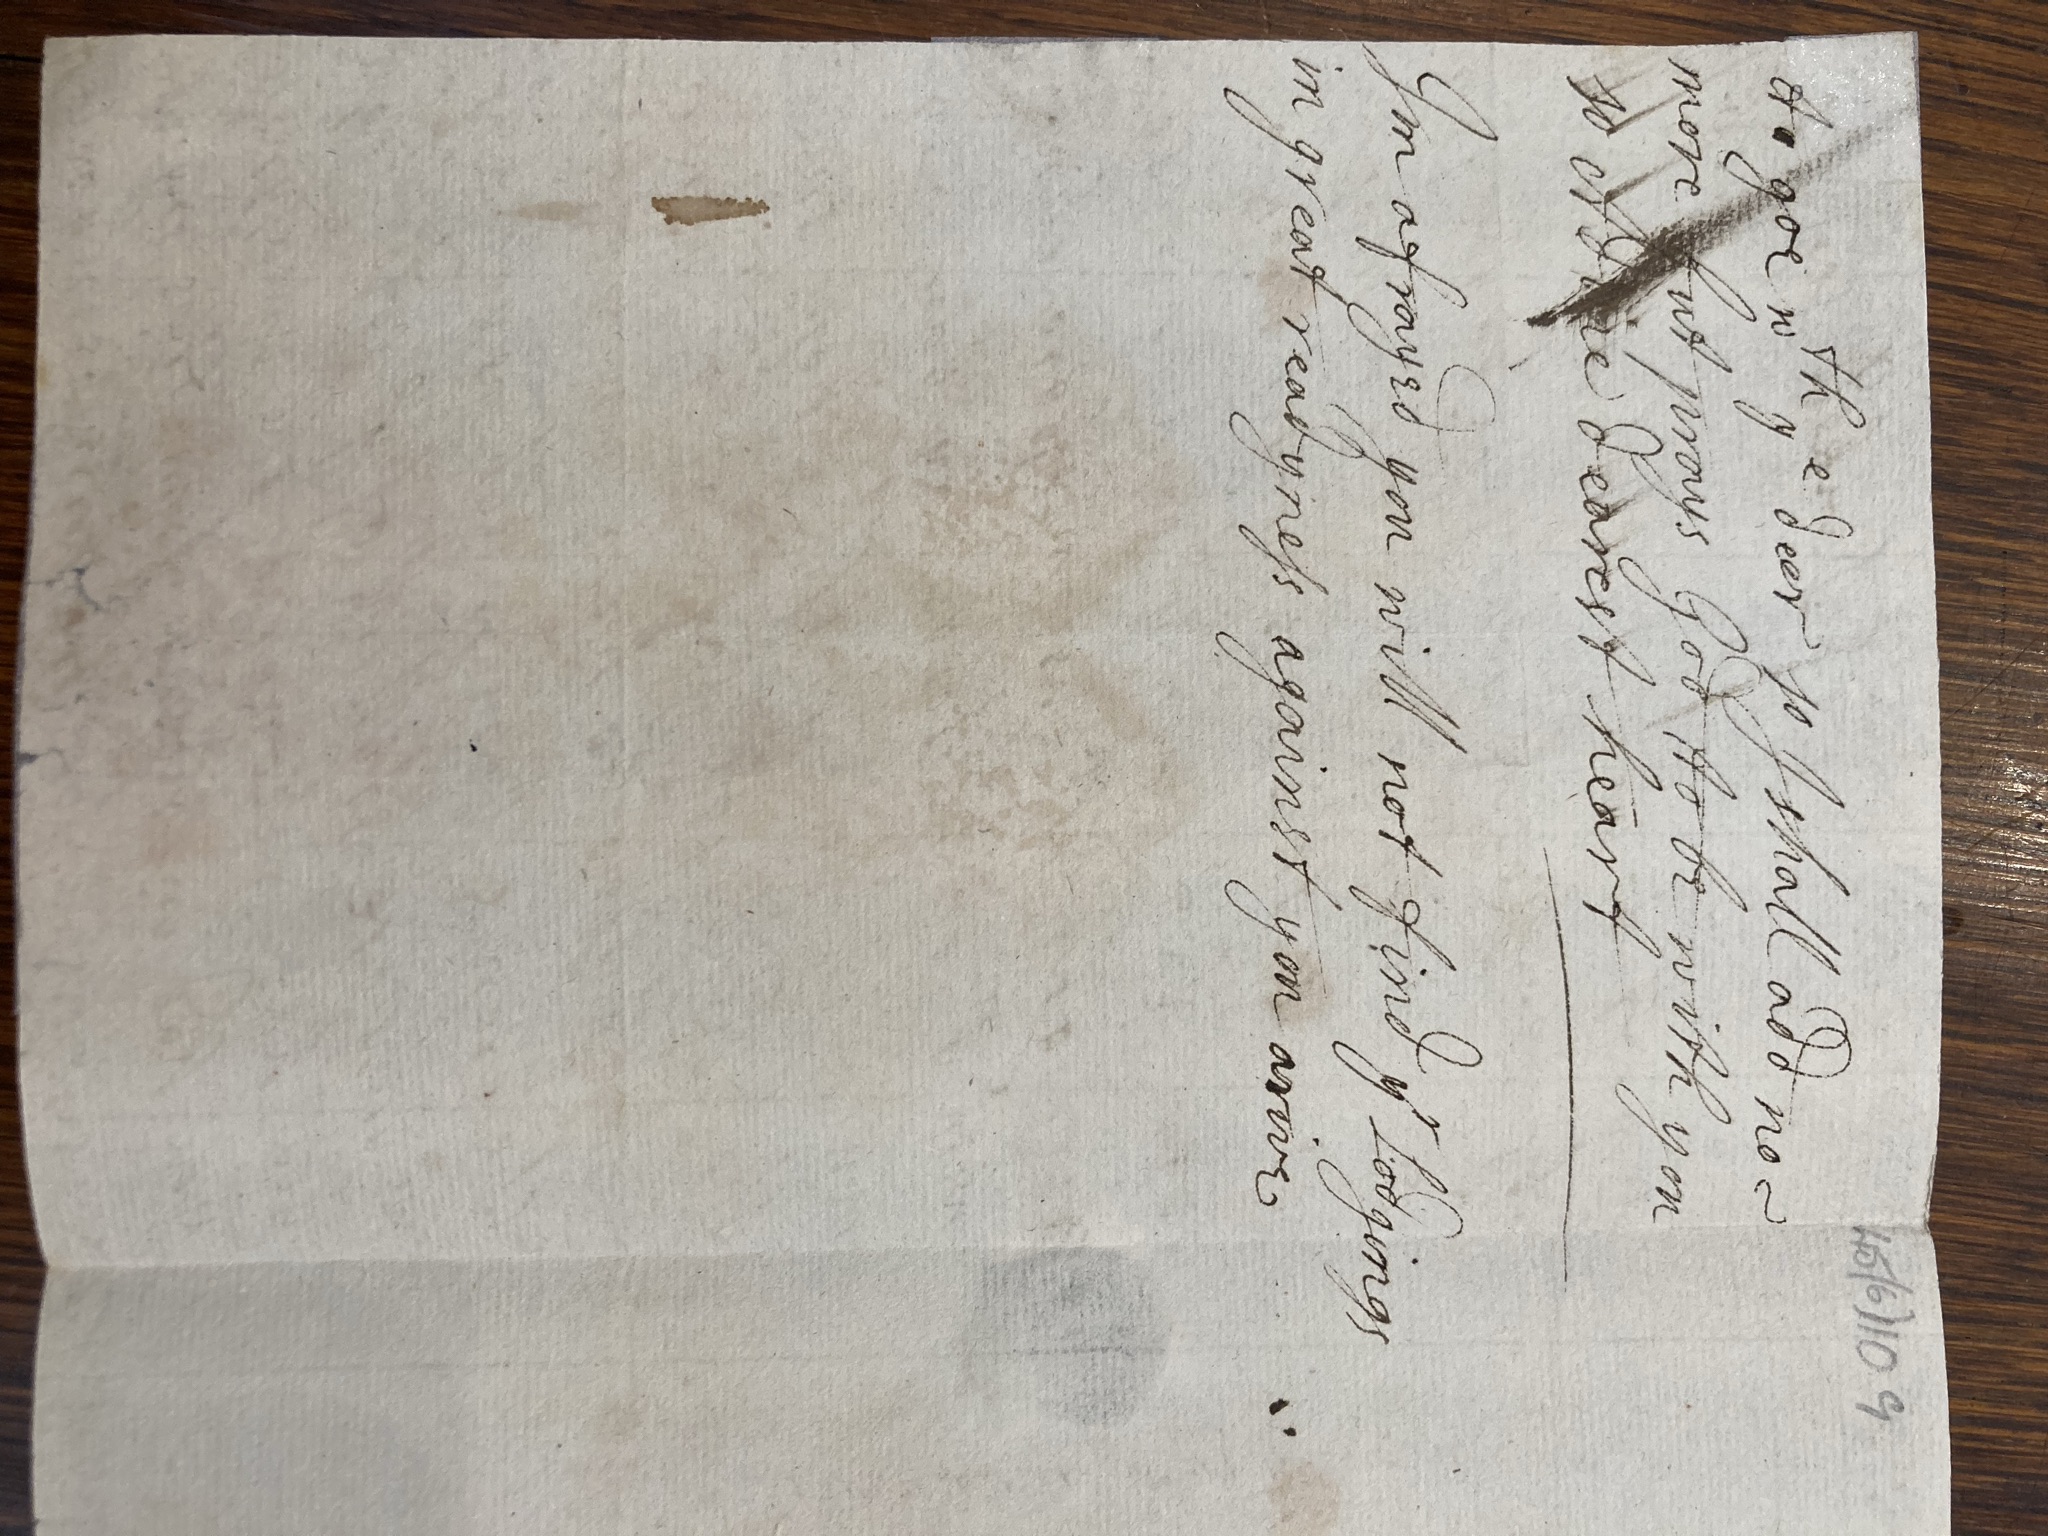 45(6)110 9
to goe wth ye deer so I shall add no
more but prays God to be with you
so Adiue dearest heart
I'm afrayed you will not find yr Lodgings
in great readyness against you arive